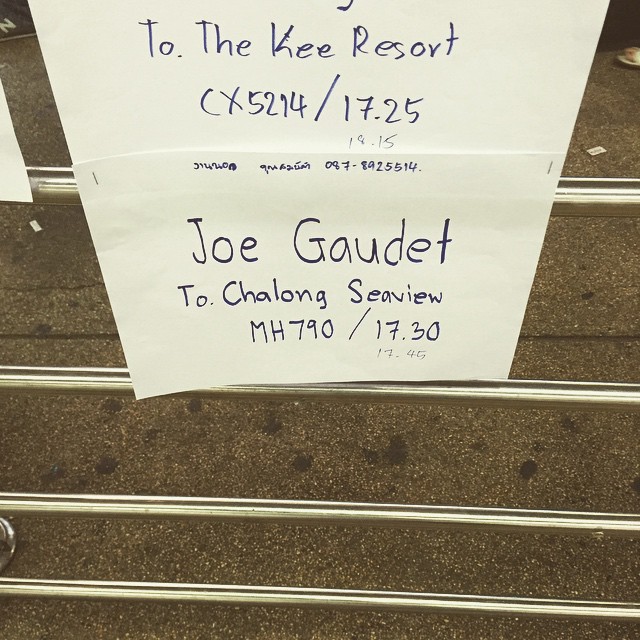 To. The Kee Resort
CX5214/17.25
18.15
087-8925514.
Joe Gaudet
To. Chalong Seaview
MH790/17.30
17.45